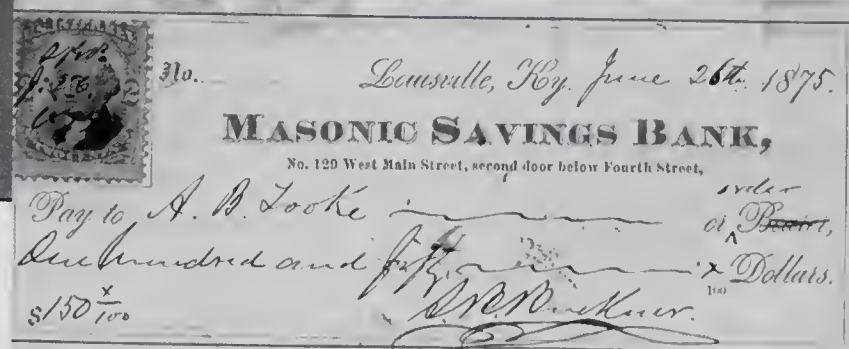 S.B.B.
J. 26
No. Louisville, Ky. June 26th 1875.
MASONIC SAVINGS BANK,
No. 129 West Main Street, second door below Fourth Street,
order
Pay to A. B. Looke or ^ Bearer,
One hundred and fifty x/100 Dollars.
$150 x/100 S. B. Buckner.